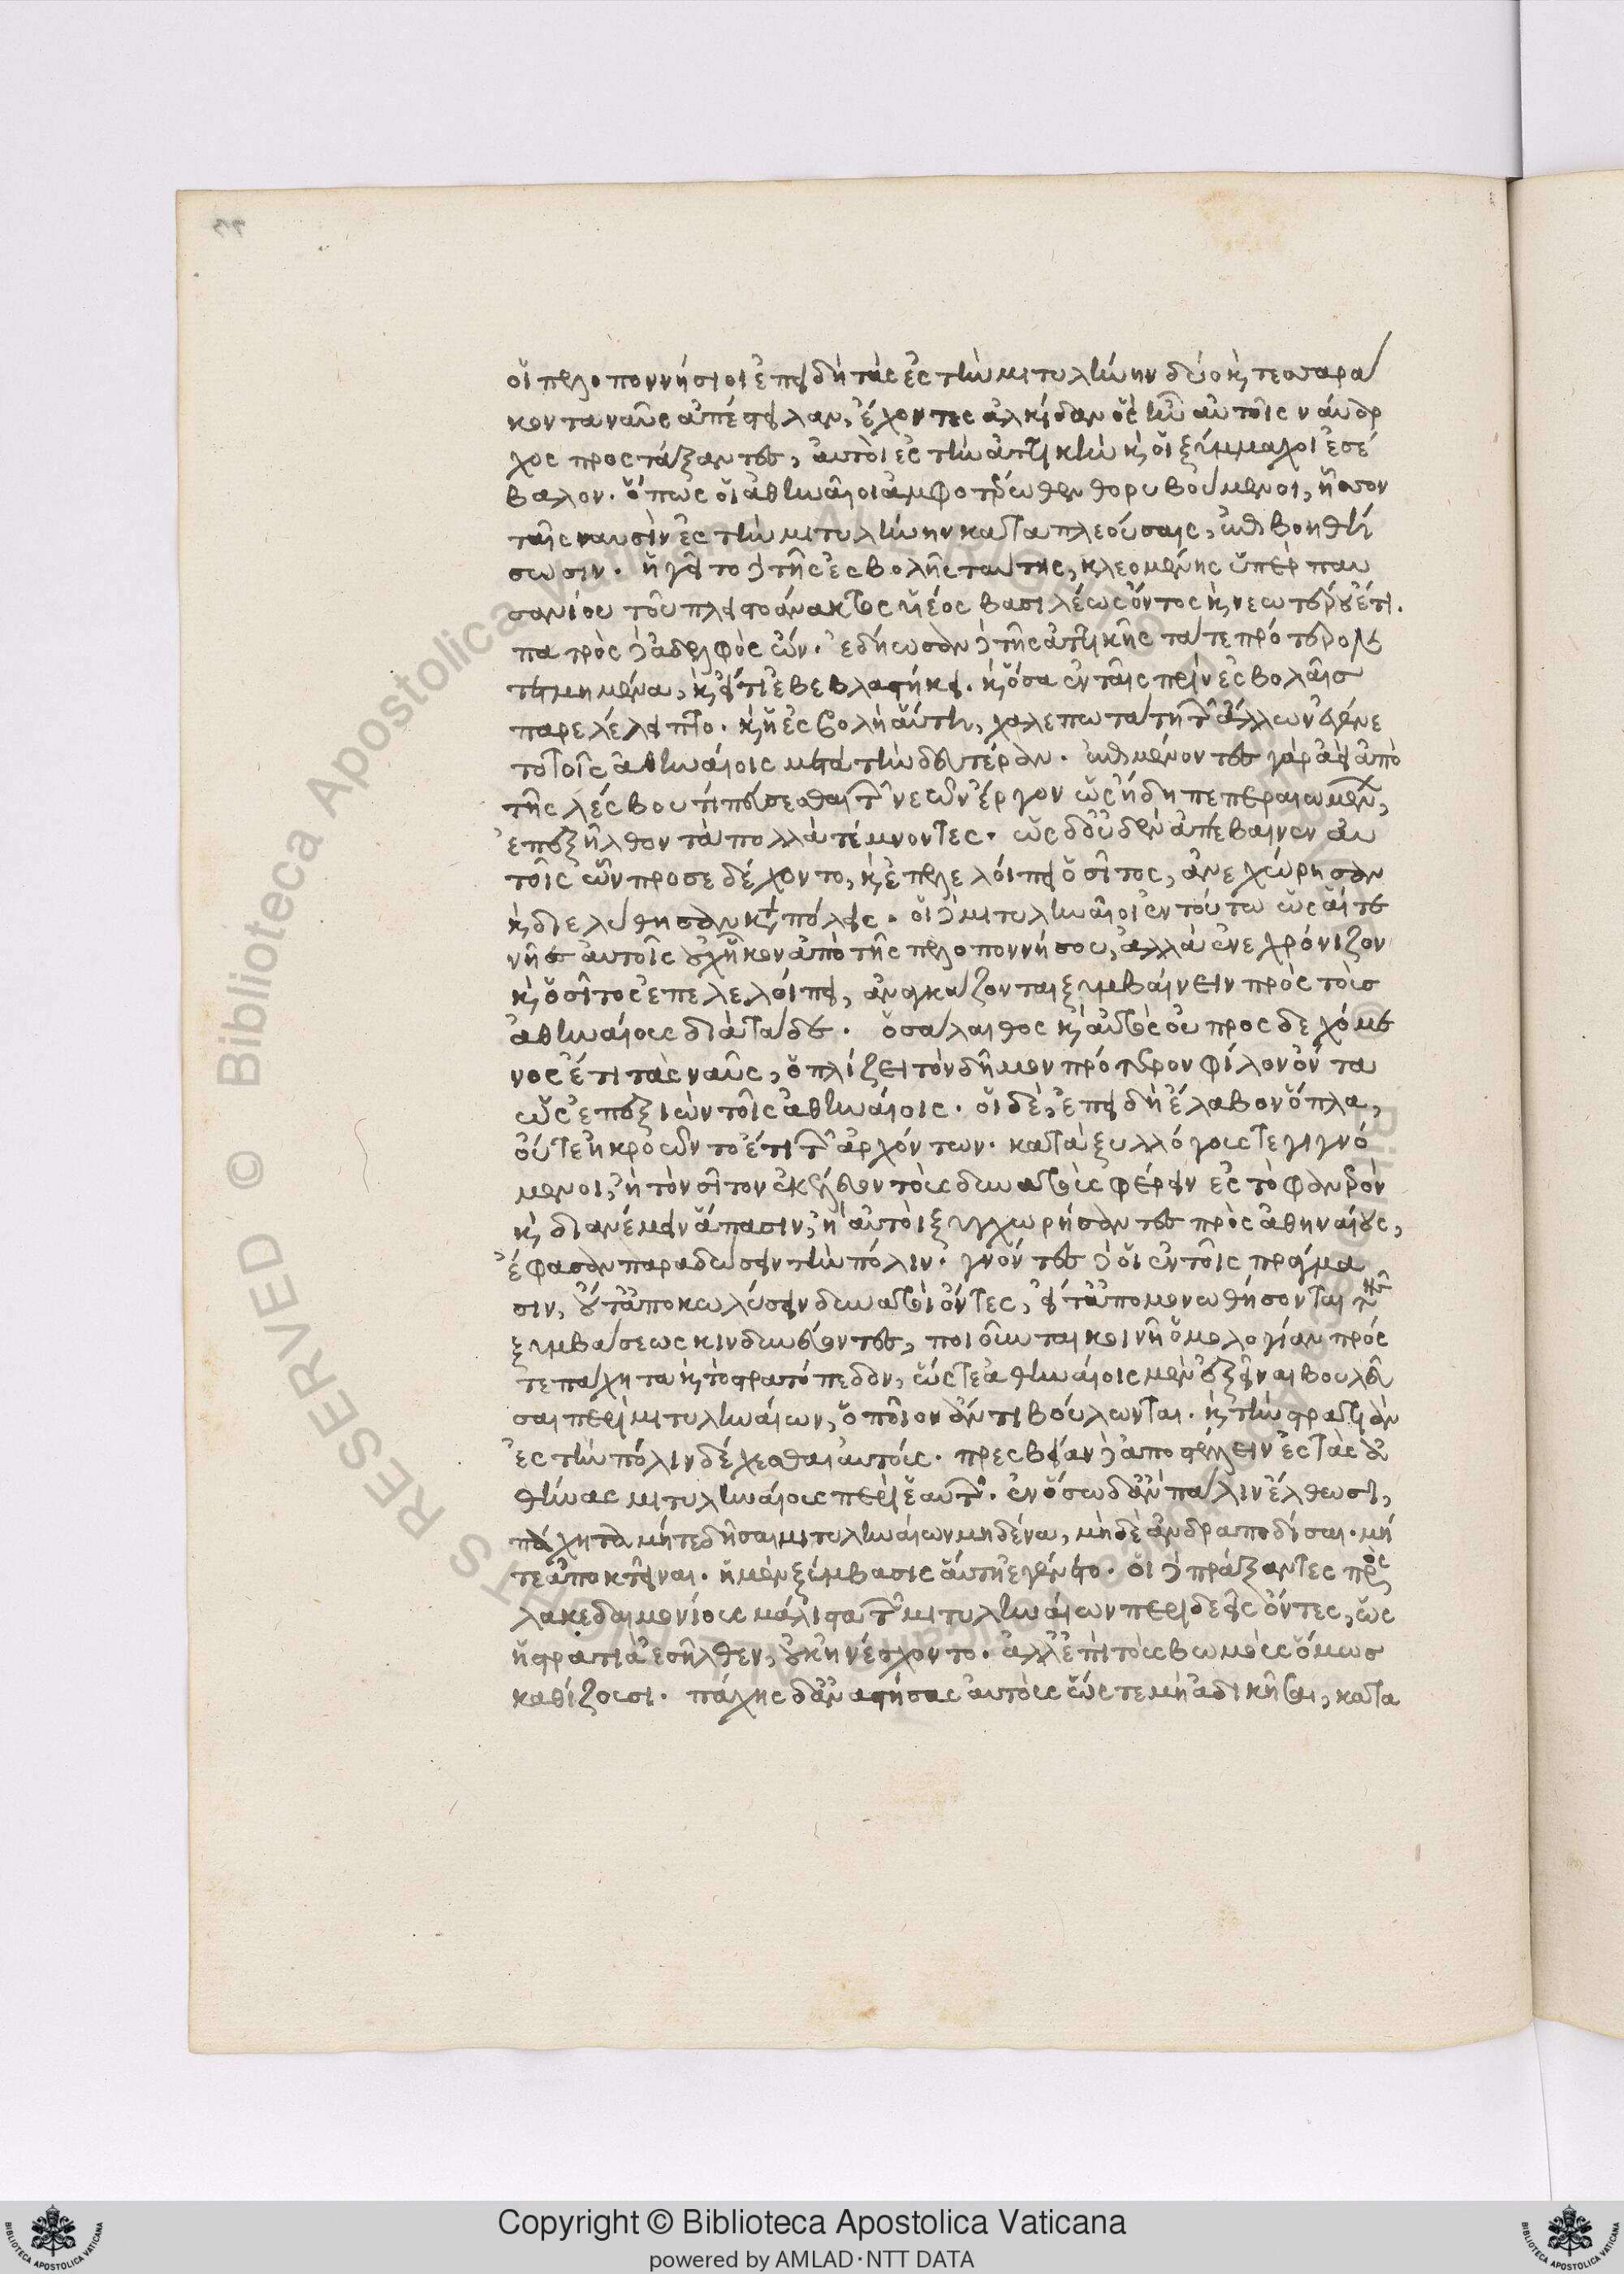 οἱ πελοποννήσιοι ἐπειδὴ τὰς ἐς τὴν μιτυλήνην δύο καὶ τεσσαρά
κοντα ναῦς ἀπέστειλαν, ἔχοντες ἀλκίδαν ὃς ἦν αὐτοῖς ναύαρ
χος προστάξαντες, αὐτοὶ ἐς τὴν ἀττικὴν καὶ οἱ ξύμμαχοι ἐσέ
βαλον. ὅπως οἱ ἀθηναῖοι ἀμφοτέρωθεν θορυβούμενοι, ἧσσον
ταῖς ναυσὶν ἐς τὴν μιτυλήνην καταπλεούσαις, ἐπιβοηθή
σωσιν. ἡγεῖτο δὲ τῆς ἐσβολῆς ταύτης, κλεομένης ὑπὲρ παυ
σανίου τοῦ πλειστοάνακτος υἱέος βασιλέως ὄντος καὶ νεωτέρου ἔτι.
πατρὸς δὲ ἀδελφὸς ὤν. ἐδήωσαν δὲ τῆς ἀττικῆς τά τε πρότερον
τετμημένα, καὶ εἴ τι ἐβεβλαστήκει. καὶ ὅσα ἐν ταῖς πρὶν ἐσβολαῖς
παρελέλειπτο. καὶ ἡ ἐσβολὴ αὕτη, χαλεπωτάτη τῶν ἄλλων ἐγένε
το τοῖς ἀθηναίοις μετὰ τὴν δευτέραν. ἐπιμένοντες γὰρ ἀεὶ ἀπὸ
τῆς λέσβου τὶ πεύσεσθαι τῶν νεῶν ἔργον ὡς ἤδη πεπεραιωμένων,
ἐπεξῆλθον τὰ πολλὰ τέμνοντες. ὡς δ' οὐδὲν ἀπέβαινεν αὐ
τοῖς ὧν προσεδέχοντο, καὶ ἐπελελοίπει ὁ σῖτος, ἀνεχώρησαν
καὶ διελύθησαν κατὰ πόλεις. οἱ δὲ μιτυληναῖοι ἐν τούτω ὡς αἵ τε
νῆες αὐτοῖς οὐχ ἧκον ἀπὸ τῆς πελοποννήσου, ἀλλὰ ἐνεχρόνιζον
καὶ ὁ σῖτος ἐπελελοίπει, ἀναγκάζονται ξυμβαίνειν πρὸς τοὺς
ἀθηναίους διὰ τάδε. ὁ σάλαιθος καὶ αὐτὸς οὐ προσδεχόμε
νος ἔτι τὰς ναῦς, ὁπλίζει τὸν δῆμον πρότερον ψιλὸν ὄντα
ὡς ἐπεξιὼν τοῖς ἀθηναίοις. οἱ δὲ, ἐπειδὴ ἔλαβον ὅπλα,
οὔτε ἠκροῶντο ἔτι τῶν ἀρχόντων. κατὰ ξυλλόγους τε γιγνό
μενοι, ἢ τὸν σῖτον ἐκέλευον τοὺς δυνατοὺς φέρειν ἐς τὸ φανερὸν
καὶ διανέμειν ἅπασιν, ἢ αὐτοὶ ξυγχωρήσαντες πρὸς ἀθηναίους,
ἔφασαν παραδώσειν τὴν πόλιν. γνόντες δὲ οἱ ἐν τοῖς πράγμα
σιν, οὔτ' ἀποκωλύσειν δυνατοὶ ὄντες, εἴ τ' ἀπομονωθήσονται τῆς
ξυμβάσεως κινδυνεύοντες, ποιοῦνται κοινῇ ὁμολογίαν πρός
τε πάχητα καὶ τὸ στρατόπεδον, ὥστε ἀθηναίοις μὲν ἐξεῖναι βουλεῦ
σαι περὶ μιτυληναίων, ὁποῖον ἄν τι βούλωνται. καὶ τὴν στρατιὰν
ἐς τὴν πόλιν δέχεσθαι αὐτούς. πρεσβείαν δὲ ἀποστέλλειν ἐς τὰς ἀ
θήνας μιτυληναίους περὶ ἑαυτῶν. ἐν ὅσω δ' ἂν πάλιν ἔλθωσι,
πάχητα μήτε δῆσαι μιτυληναίων μηδένα, μηδὲ ἀνδραποδίσαι. μή
τε ἀποκτεῖναι. ἡ μὲν ξύμβασις αὕτη ἐγένετο. οἱ δὲ πράξαντες πρὸς
λακεδαιμονίους μάλιστα τῶν μιτυληναίων περιδεεῖς ὄντες, ὡς
ἡ στρατιὰ ἐσῆλθεν, οὐκ ἠνέσχοντο. ἀλλ' ἐπὶ τοὺς βωμοὺς ὅμως
καθίζουσι. πάχης δ' ἀναστήσας αὐτοὺς ὥστε μὴ ἀδικῆσαι, κατα
Copyright © Biblioteca Apostolica Vaticana
powered by AMLAD·NTT DATA